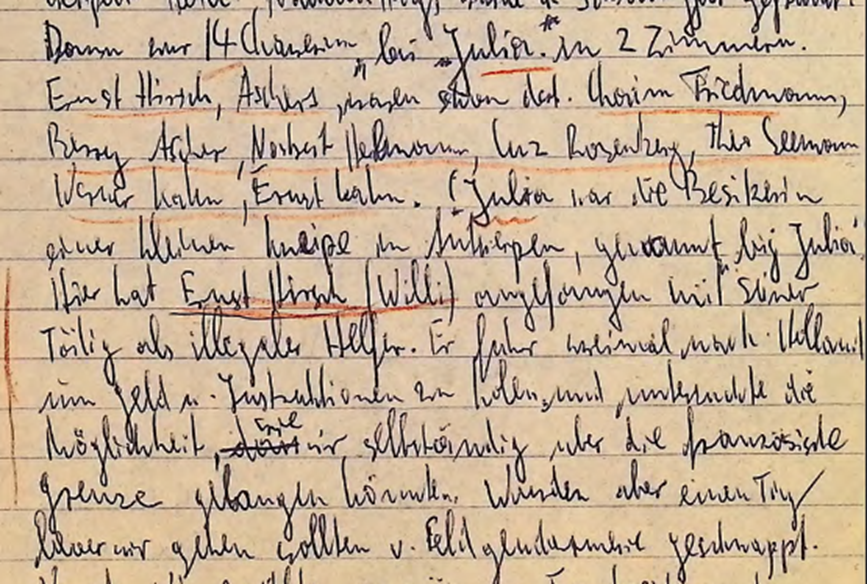 Dann nur 14 Chawerim, bei "Julia" in 2 Zimmern.
Ernst Hirsch, Aschers, waren schon dort. Chaim Friedmann,
Berry Ascher, Norbert Hellmann, Lutz Rosenberg, Theo Seemann
Werner Kahn, Ernst Kahn. (Julia war die Besitzerin
einer kleinen Kneipe in Antwerpen, genannt big Julia)
Hier hat Ernst Hirsch (Willi) angefangen mit seiner
Tätig als illegaler Helfer. Er fuhr zweimal nach Holland
um Geld u. Instruktionen zu holen, und untersuchte die
Möglichkeit, wie wir selbständig über die französische
Grenze gelangen könnten. Wurden aber einen Tag
bevor wir gehen wollten v. Feldgendarmerie geschnappt.